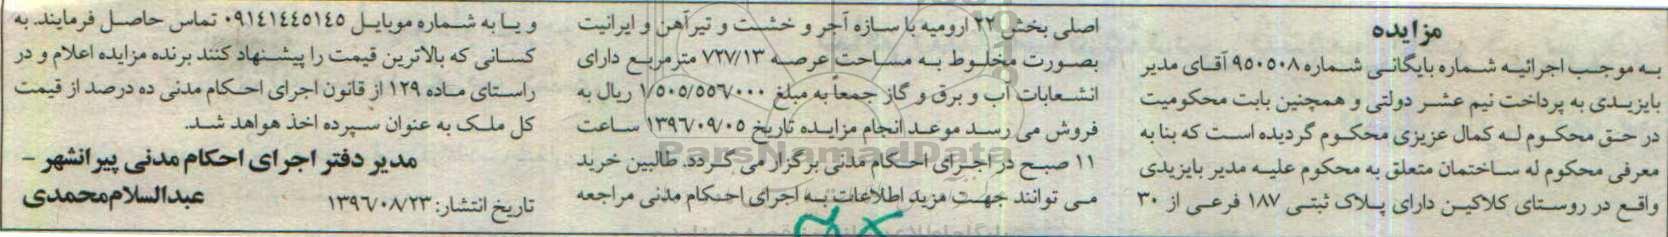 مزایده
به موجب اجرائیه شماره بایگانی شماره ۹۵۰۵۰۸ آقای مدیر
بایزیدی به پرداخت نیم عشر دولتی و همچنین بابت محکومیت
در حق محکوم له کمال عزیزی محکوم گردیده است که بنا به
معرفی محکوم له ساختمان متعلق به محکوم علیه مدیر بایزیدی
واقع در روستای کلاکین دارای پلاک ثبتی ۱۸۷ فرعی از ۳۰
اصلی بخش ۲۲ ارومیه با سازه آجر و خشت و تیرآهن و ایرانیت
بصورت مخلوط به مساحت عرصه ۷۲۷/۱۳ مترمربع دارای
انشعابات آب و برق و گاز جمعاً به مبلغ ۱/۵۰۵/۵۵۶/۰۰۰ ریال به
فروش می رسد موعد انجام مزایده تاریخ ۱۳۹۶/۰۹/۰۵ ساعت
۱۱ صبح در اجرای احکام مدنی برگزار می گردد. طالبین خرید
می توانند جهت مزید اطلاعات به اجرای احکام مدنی مراجعه
و یا به شماره موبایل ۰۹۱۴۱۴۴۵۱۴۵ تماس حاصل فرمایند. به
کسانی که بالاترین قیمت را پیشنهاد کنند برنده مزایده اعلام و در
راستای ماده ۱۲۹ از قانون اجرای احکام مدنی ده درصد از قیمت
کل ملک به عنوان سپرده اخذ هواهد شد.
مدیر دفتر اجرای احکام مدنی پیرانشهر -
عبدالسلام محمدی
تاریخ انتشار: ۱۳۹۶/۰۸/۲۳
ParsNamadData